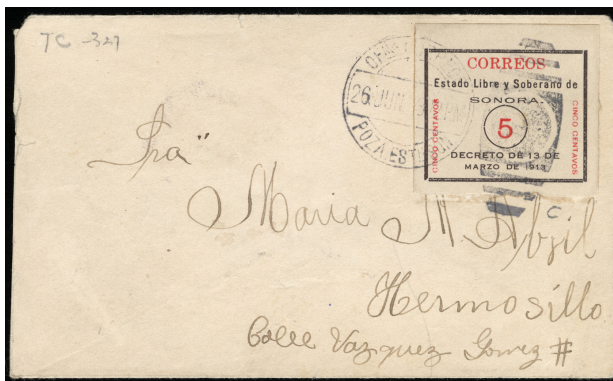 TC-327
CORREOS
Estado Libre y Soberano de
SONORA.
CINCO CENTAVOS
5
CINCO CENTAVOS
DECRETO DE 13 DE
MARZO DE 1913
26 JUN
POZA EST
C.
Sra
Maria M. Abril
Hermosillo
Calle Vazquez Gomez #